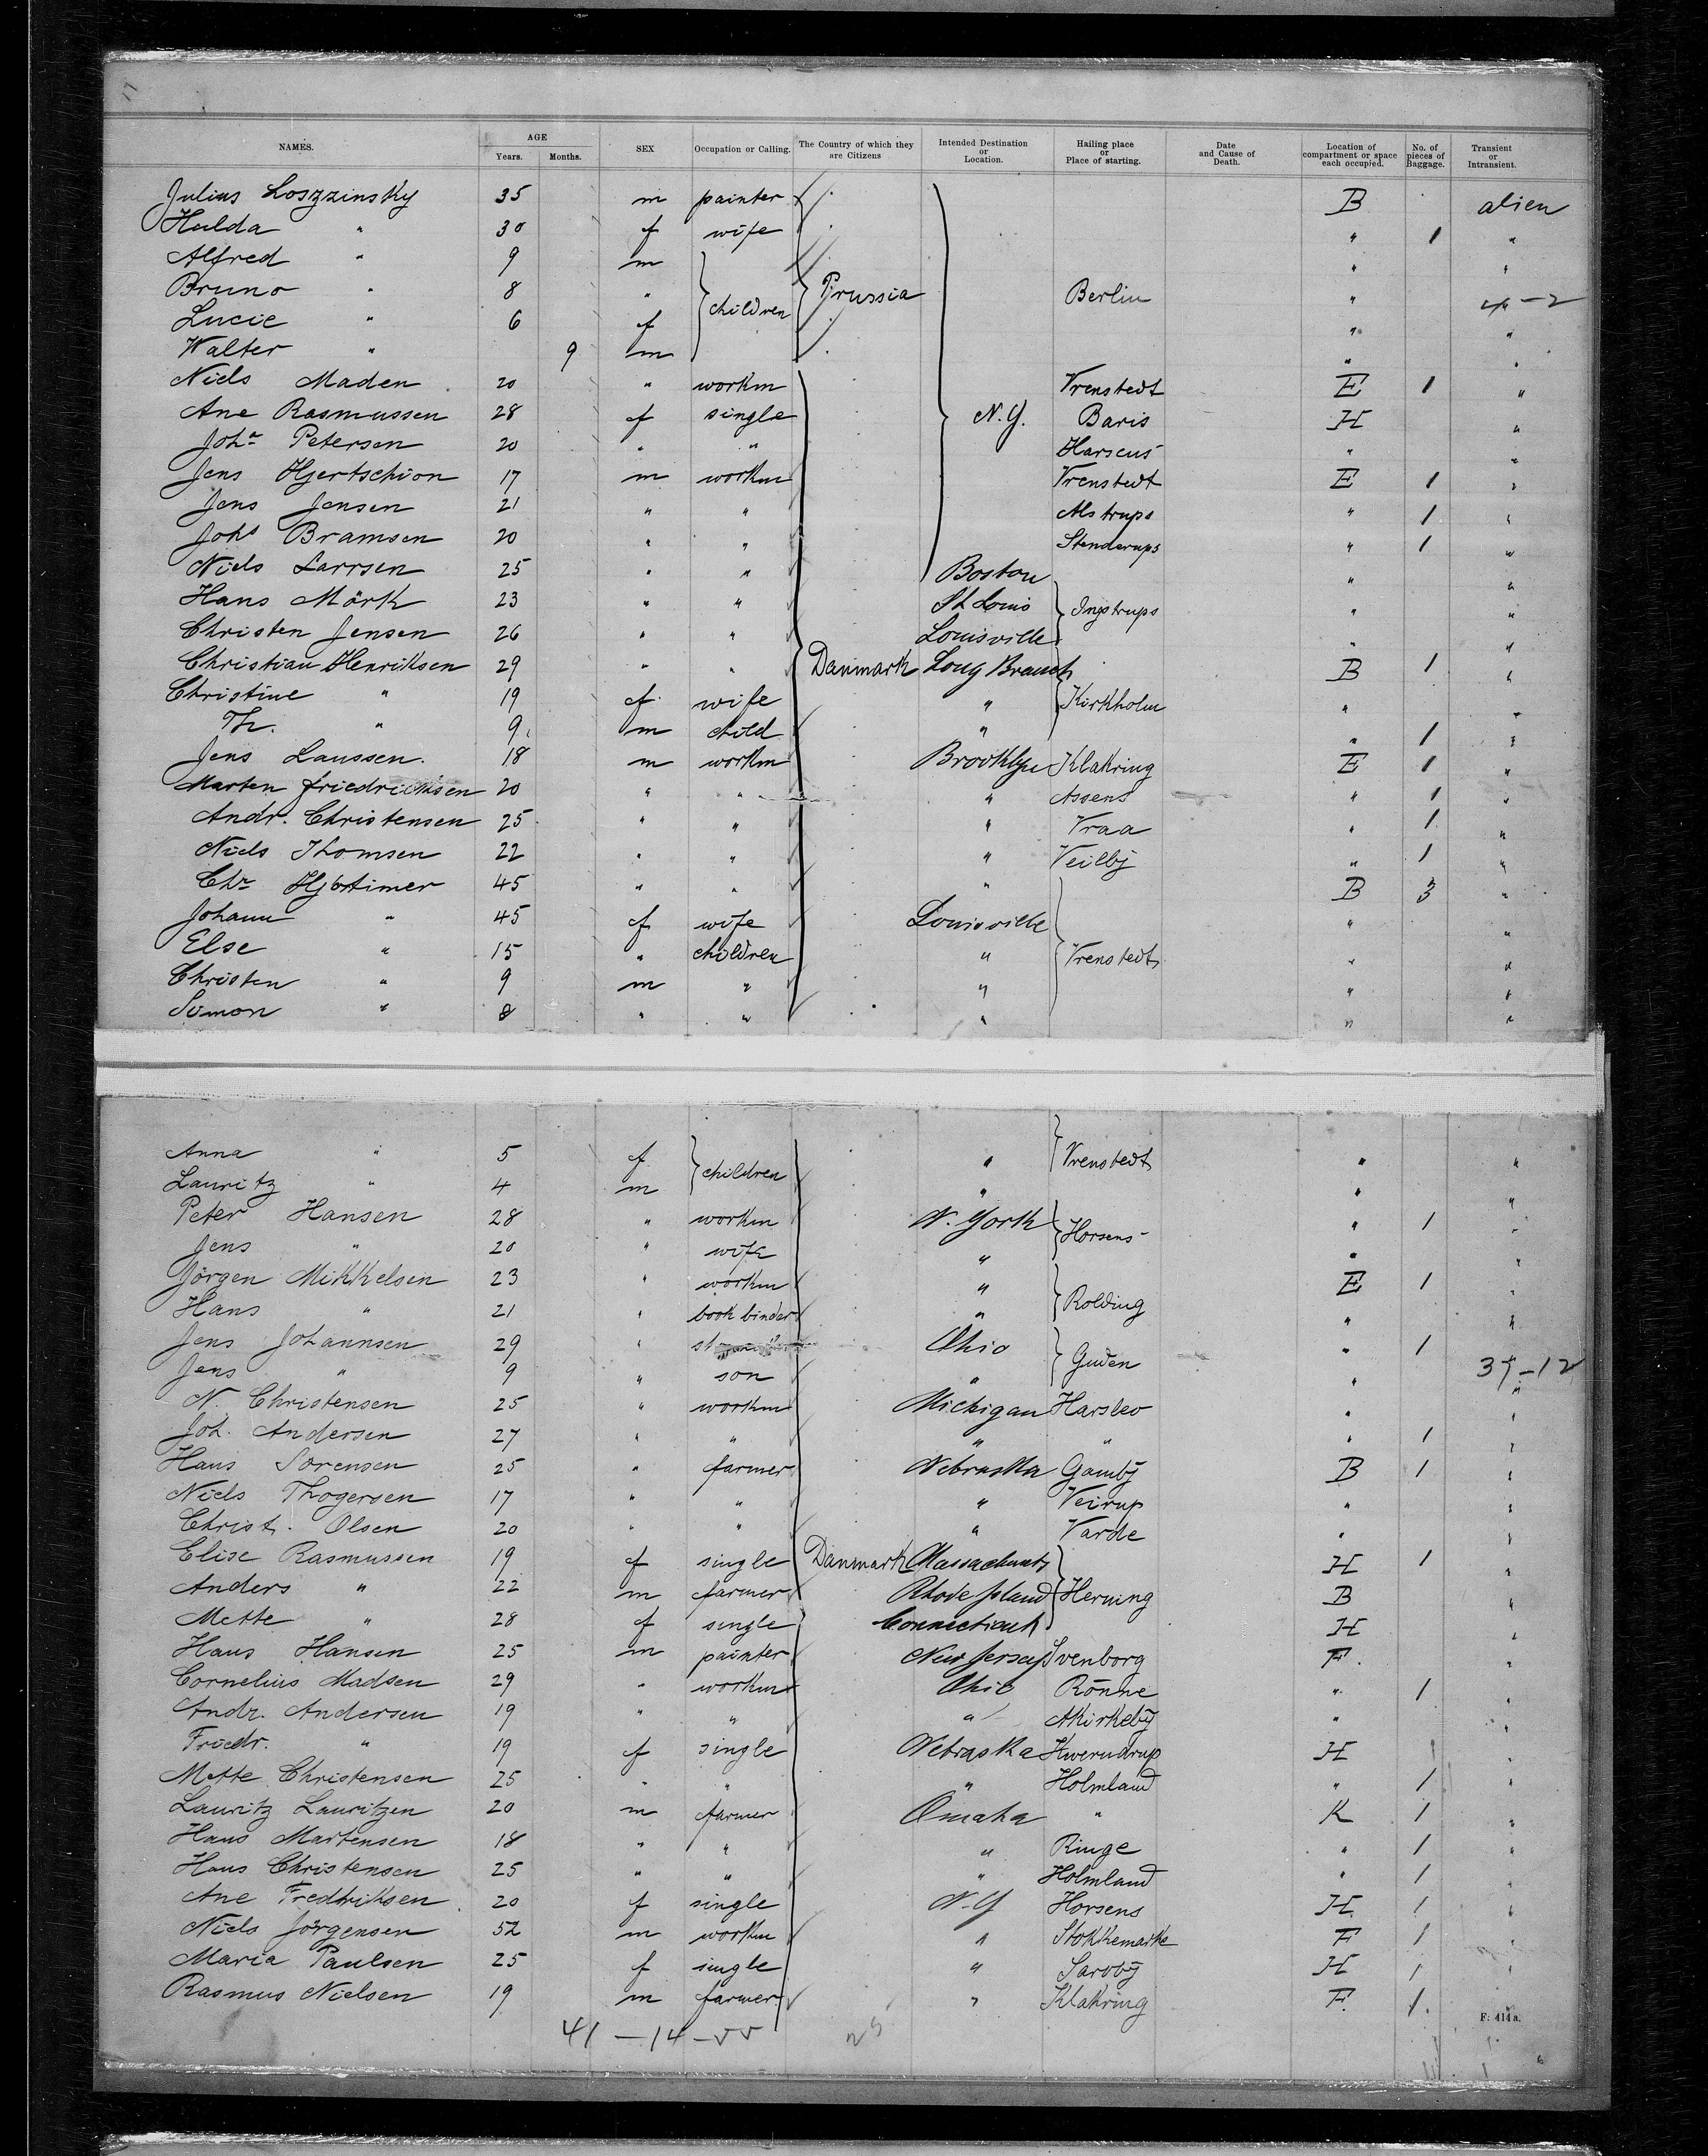 NAMES. AGE Years. Months. SEX Occupation or Calling. The Country of which they are Citizens Intended Destination or Location. Hailing place or Place of starting. Date and Cause of Death. Location of compartment or space each occupied. No. of pieces of Baggage. Transient or Intransient.
Julius Loszzinsky 35 m painter B alien
Hulda " 30 f wife " 1 "
Alfred " 9 m " "
Bruno " 8 " children Prussia Berlin " 4-2
Lucie " 6 f " "
Walter " 9 m " "
Niels Maden 20 " workm Vrenstedt E 1 "
Ane Rasmussen 28 f single N.Y. Baris H "
Joh^a Petersen 20 " " Harseus " "
Jens Hjertschion 17 m workm Vrenstedt E 1 "
Jens Jensen 21 " " Alstrups " 1 "
Joh^s Bramsen 20 " " Stenderups " 1 "
Niels Larrsen 25 " " Boston " "
Hans Mörk 23 " " St Louis Ingstrups " "
Christen Jensen 26 " " Louisville " "
Christian Henriksen 29 " " Danmark Long Branch B 1 "
Christine " 19 f wife " Kirkholm " "
Th. " 9 m child " " 1 "
Jens Laussen. 18 m workm Brooklyn Klakring E 1 "
Marten friedricksen 20 " " " Assens " 1 "
Andr. Christensen 25 " " " Vraa " 1 "
Niels Thomsen 22 " " " Veilbÿ " 1 "
Ch^r Hjortimer 45 " " " B 3 "
Johann " 45 f wife Louisville " "
Else " 15 " children " Vrenstedt " "
Christen " 9 m " " " "
Simon " 8 " " " " "
Anna " 5 f children " Vrenstedt " "
Lauritz " 4 m " " "
Peter Hansen 28 " workm N. York Horsens " 1 "
Jens " 20 " wife " " "
Jörgen Mikkelsen 23 " workm " Rolding E 1 "
Hans " 21 " book binder " " "
Jens Johannsen 29 " Ohio Guden " 1
Jens " 9 " son " " 37-12 "
N. Christensen 25 " workm Michigan Harslev " "
Joh. Andersen 27 " " " " " 1 "
Hans Sorensen 25 " farmer Nebraska Gambÿ B 1 "
Niels Thogersen 17 " " " Veirup " "
Christ. Olsen 20 " " " Varde " "
Elise Rasmussen 19 f single Danmark Massachusets H 1 "
Anders " 22 m farmer Rhode Island Herning B "
Mette " 28 f single Connecticut H "
Hans Hansen 25 m painter New Jersey Svenborg F. "
Cornelius Madsen 29 " workm Ohio Rönne " 1 "
Andr. Andersen 19 " " " Akirkebÿ " "
Friedr. " 19 f single Nebraska Kwerndrup H "
Mette Christensen 25 " " " Holmland " 1 "
Lauritz Lauritzen 20 m farmer Omaha " K 1 "
Hans Martensen 18 " " " Ringe " 1 "
Hans Christensen 25 " " " Holmland " 1 "
Ane Fredriksen 20 f single N.Y Horsens H. 1 "
Niels Jörgensen 52 m workm " Stokkemarke F 1 "
Maria Paulsen 25 f single " Sarobÿ H 1 "
Rasmus Nielsen 19 m farmer " Klakring F. 1.
F: 414a.
41-14-55